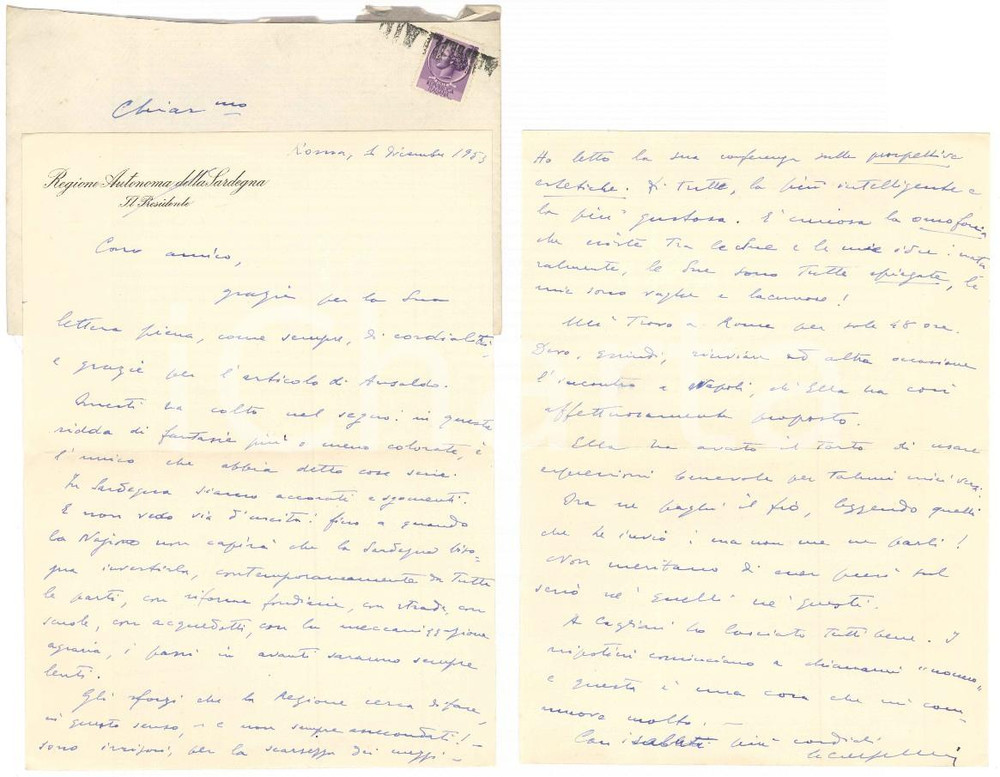 Chiar.mo
Roma, 2 dicembre 1953
Regione Autonoma della Sardegna
Il Presidente
Caro amico,
grazie per la Sua
lettera piena, come sempre, di cordialità,
e grazie per l'articolo di Ansaldo.
Questi ha colto nel segno: in questa
ridda di fantasie più o meno colorate, è
l'unico che abbia detto cose serie.
In Sardegna siamo accorati e sgomenti.
E non vedo via d'uscita: fino a quando
la Nazione non capirà che la Sardegna biso=
gna investirla, contemporaneamente da tutte
le parti, con riforme fondiarie, con strade, con
scuole, con acquedotti, con la meccanizzazione
agraria, i passi in avanti saranno sempre
lenti.
Gli sforzi che la Regione cerca di fare,
in questo senso, - e non sempre assecondati! -
sono irrisori, per la scarsezza dei mezzi -
Ho letto la sua conferenza sulle prospettive
estetiche. Di tutte, la più intelligente e
la più gustosa. È curiosa la omofonia
che esiste tra le Sue e le mie idee: natu
ralmente, le Sue sono tutte spiegate, le
mie sono vaghe e lacunose!
Mi trovo a Roma per sole 48 ore.
Devo, quindi, rinviare ad altra occasione
l'incontro a Napoli, ch'Ella ha così
affettuosamente proposto.
Ella ha avuto il torto di usare
espressioni benevole per taluni miei versi.
Ora ne paghi il fio, leggendo quelli
che Le invio: ma non me ne parli!
Non meritano di esser presi sul
serio né quelli né questi.
A Cagliari ho lasciato tutti bene. I
nipotini cominciano a chiamarmi "nonno"
e questa è una cosa che mi com=
muove molto. -
Con i saluti più cordiali